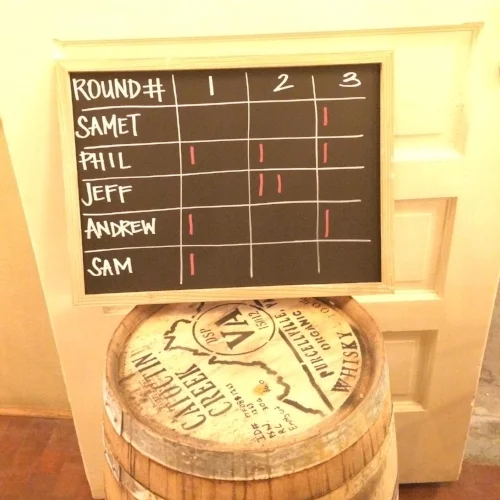 ROUND# 1 2 3
SAMET |
PHIL | | |
JEFF ||
ANDREW | |
SAM |
CATOCTIN
CREEK
DSP
VA
15012
PURCELLVILLE, V
ORGANIC
WHISKY